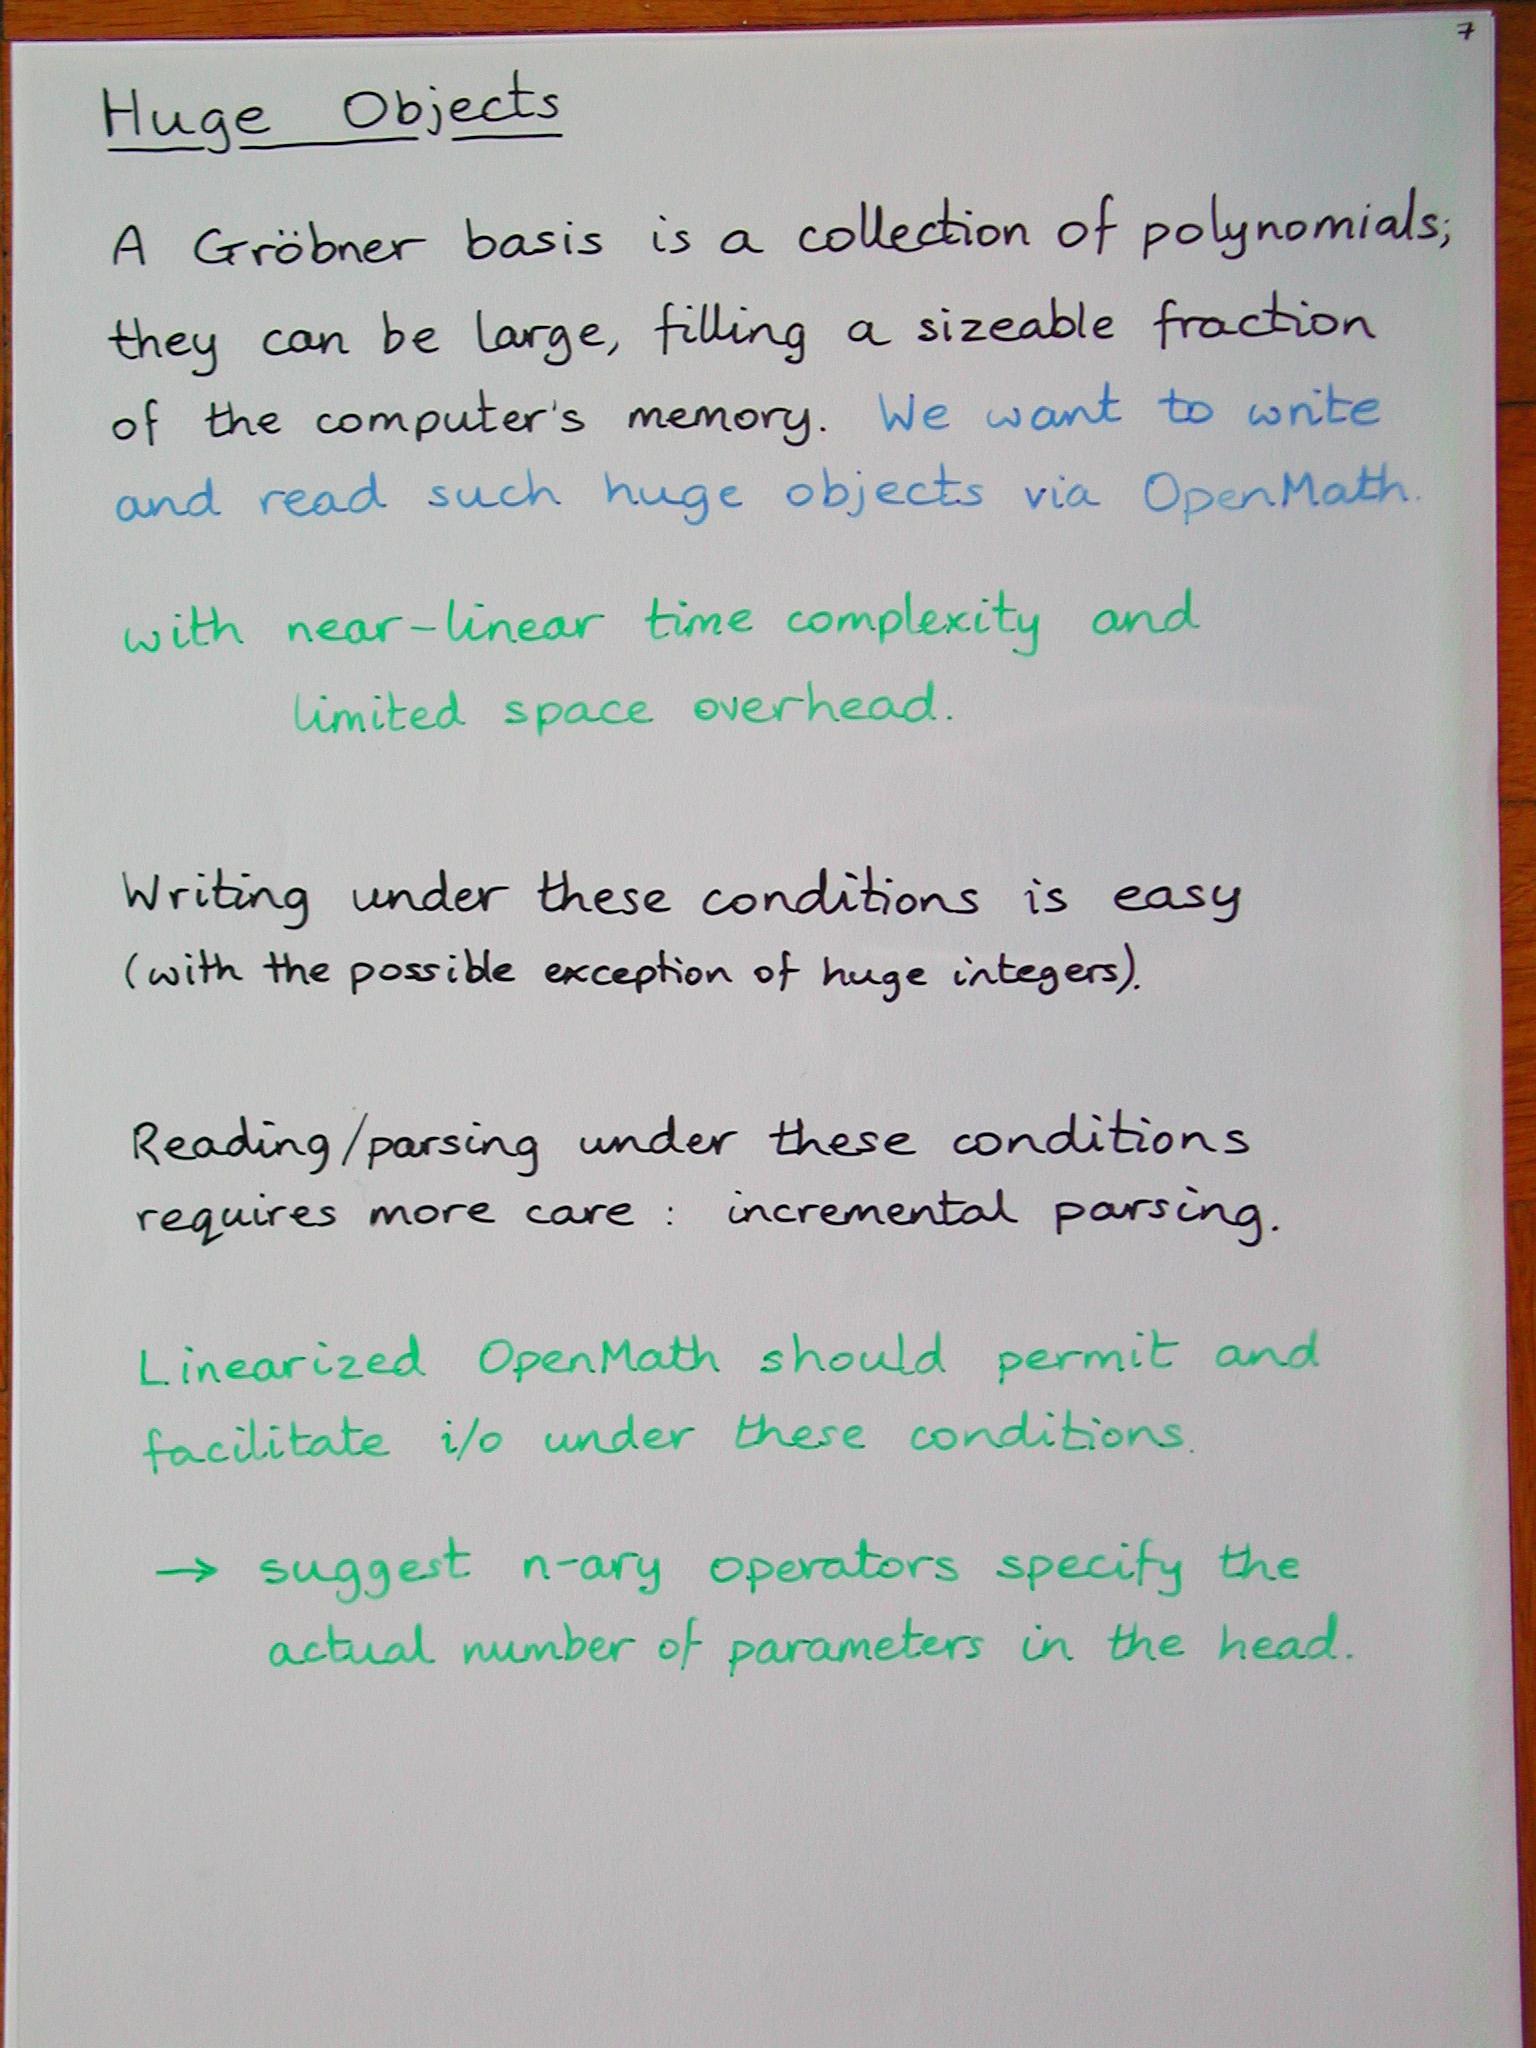 7
Huge Objects
A Gröbner basis is a collection of polynomials;
they can be large, filling a sizeable fraction
of the computer's memory. We want to write
and read such huge objects via OpenMath.
with near-linear time complexity and
limited space overhead.
Writing under these conditions is easy
(with the possible exception of huge integers).
Reading/parsing under these conditions
requires more care : incremental parsing.
Linearized OpenMath should permit and
facilitate i/o under these conditions.
→ suggest n-ary operators specify the
actual number of parameters in the head.